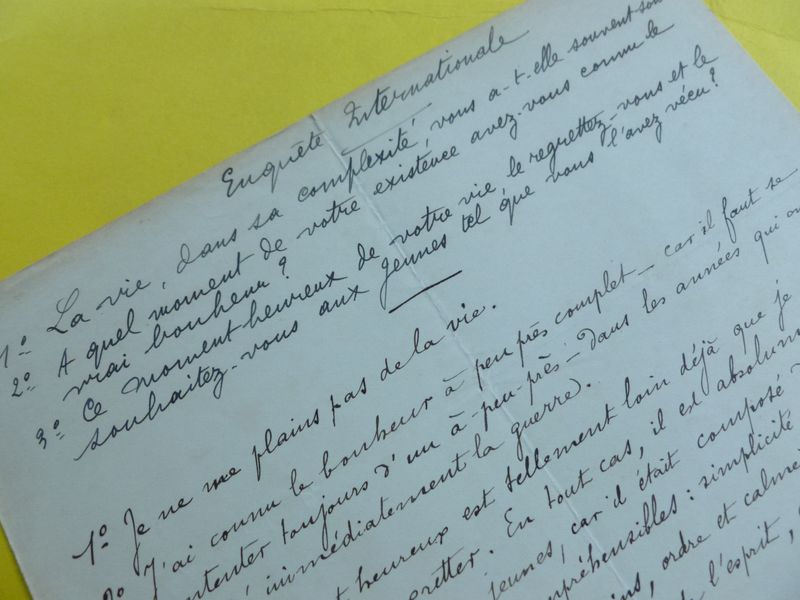 Enquête Internationale
1º La vie, dans sa complexité, vous a-t-elle souvent
2º A quel moment de votre existence avez-vous connu le
vrai bonheur?
3º Ce moment heureux de votre vie, le regrettez-vous et le
souhaitez-vous aux jeunes tel que vous l'avez vécu?
1º Je ne me plains pas de la vie.
J'ai connu le bonheur à peu près complet – car il faut se
toujours d'un à-peu-près – dans les années qui
immédiatement la guerre.
heureux est tellement loin déjà que je
En tout cas, il est
jeunes, car il était composé
simplicité
ordre et
de l'esprit,